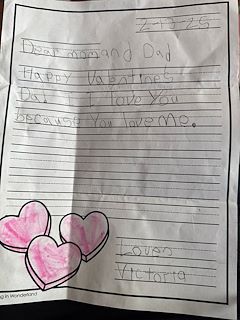 2-13-25
Dear mom and Dad
Happy Valentines
Day I love You
because You love me.
Loves
Victoria
in Wonderland